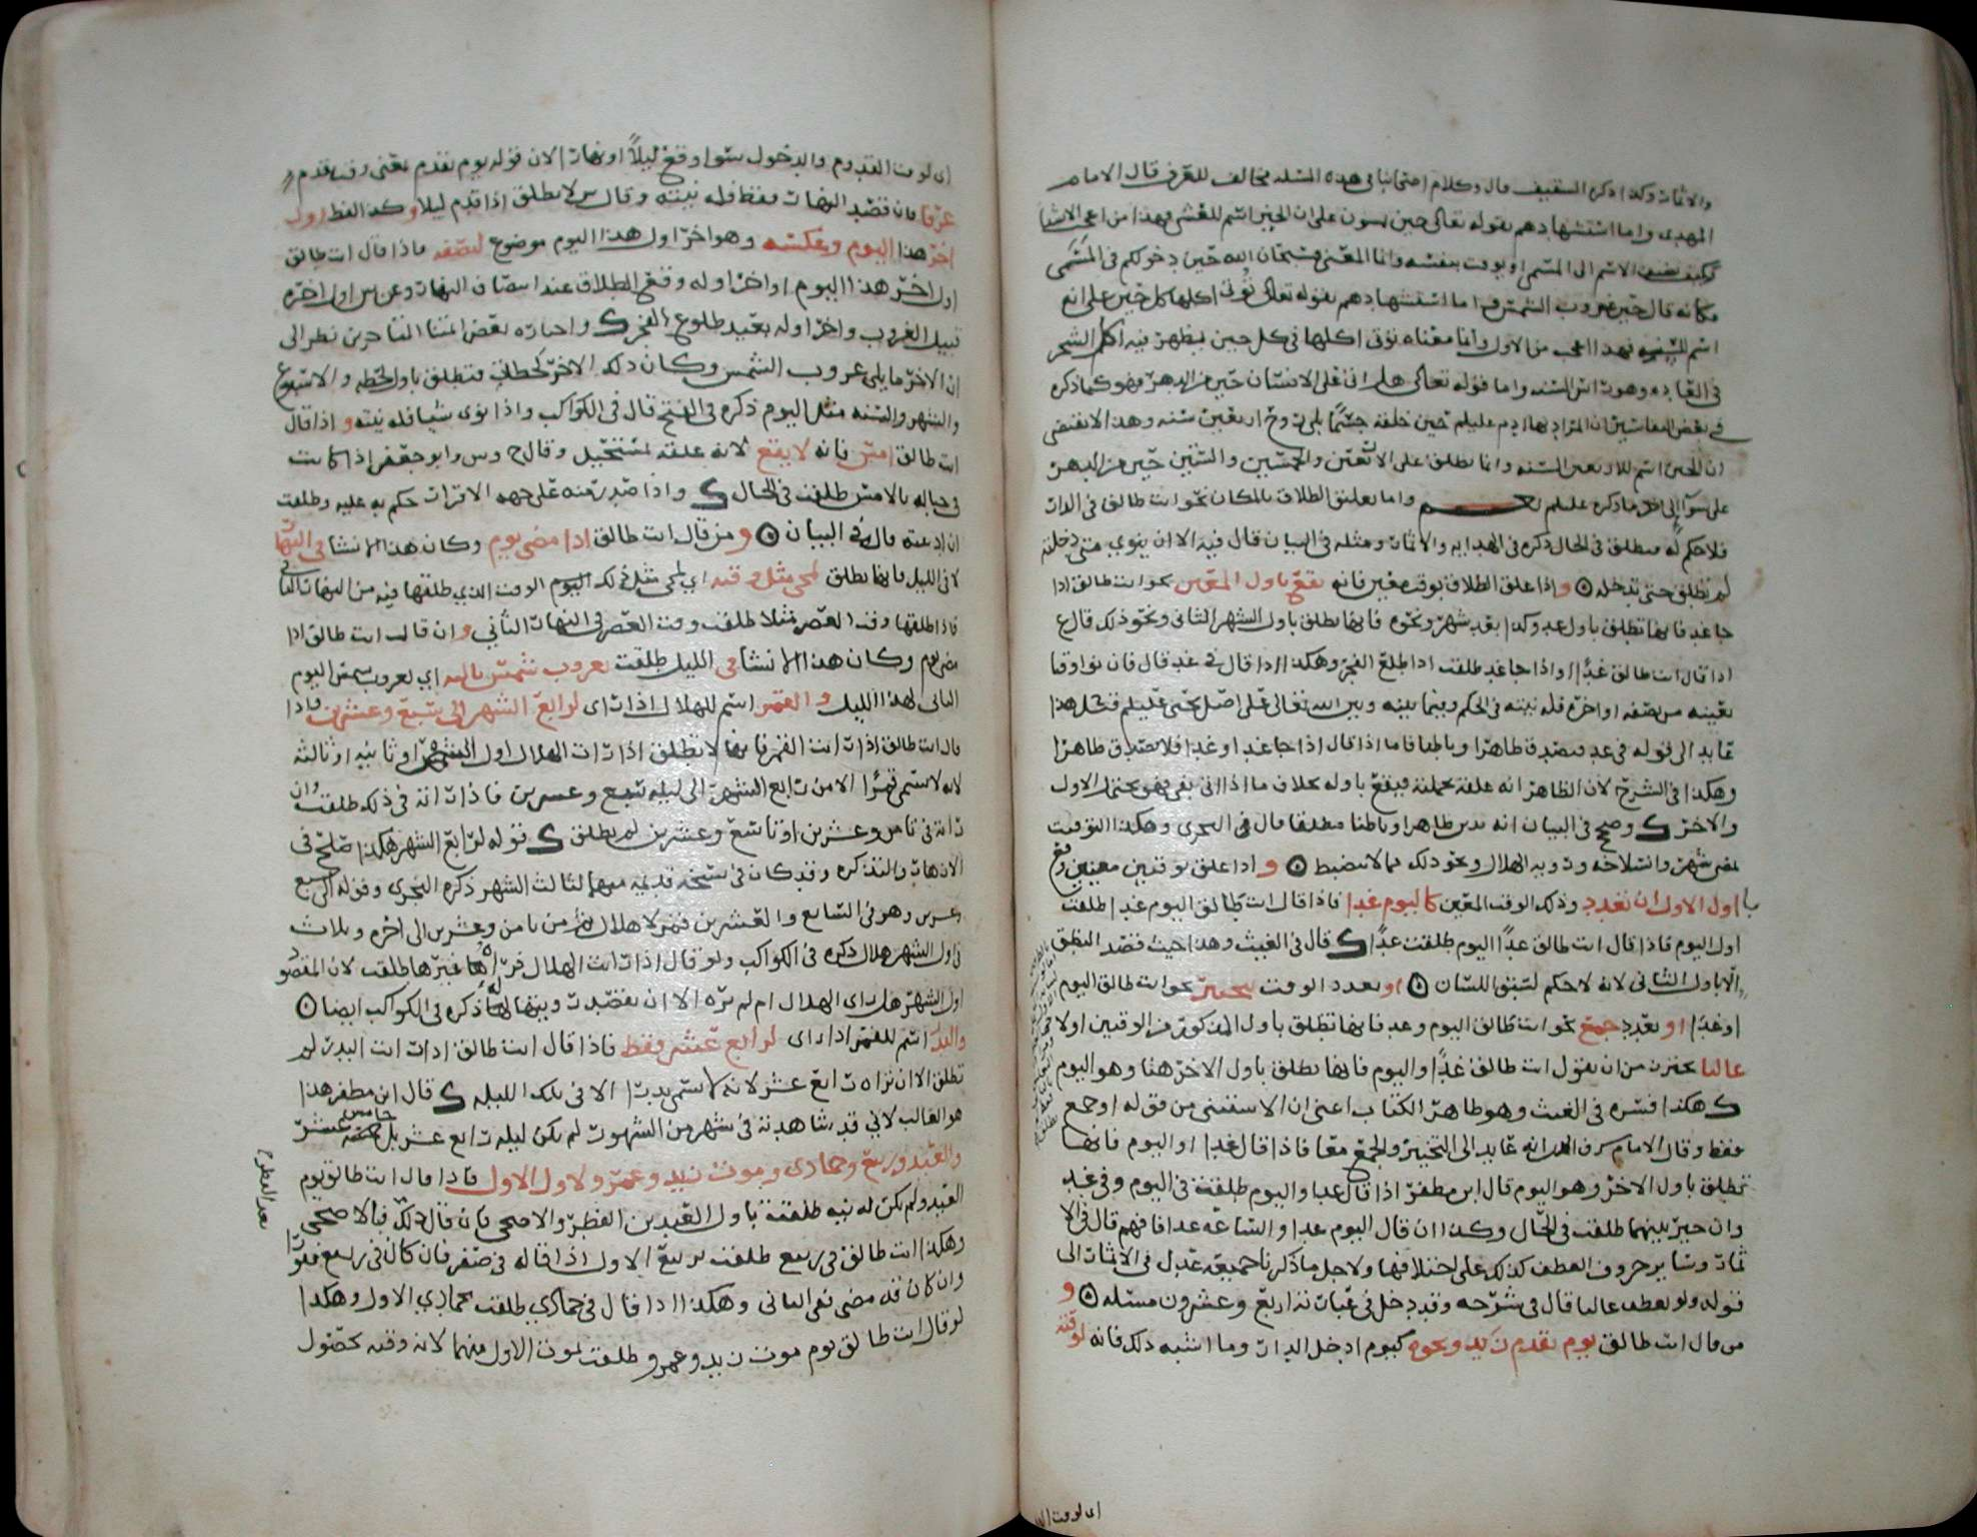 والاثمار وكذا ذكره السقيف قال وكلام اصحابنا في هذه المسئله مخالف للعرف قال الامام
المهدي واما استشهادهم بقوله تعالى حين تمسون على ان الحين اسم للعشي فهذا من اعجب الاشيا
الاسم الى المسمى او يوقت بنفسه وانما المعنى فسبحان الله حين دخولكم في المسمى
مكانه قال حين غروب الشمس واما استشهادهم بقوله تعالى تؤتي اكلها كل حين على انه
اسم للسنه فهذا اعجب من الاول وانما معناه تؤتي اكلها في كل حين يظهر فيه اكل الشجر
في العاده وهو راس السنه واما قوله تعالى هل اتى على الانسان حين من الدهر فهو كما ذكره
في بعض التفاسير ان المراد بها ادم عليلم حين خلقه جسما بلى روح اربعين سنه وهذا لا يقتضي
ان الحين اسم للاربعين السنه وانما يطلق على الاربعين والخمسين والستين حين من الدهر
على سوآ الى اخر ما ذكره عليلم نعم واما تعليق الطلاق بالمكان نحو انت طالق في الدار
فلا حكم له فتطلق في الحال ذكره في الهدايه والاثمار ومثله في البيان قال فيه الا ان ينوي متى دخلته
لم تطلق حتى تدخله ۞ واذا علق الطلاق بوقت معين فانه يقع باول المعين نحو انت طالق اذا
جا غد فانها تطلق باول غد وكذا بعد شهر ونحوه فانها تطلق باول الشهر الثاني ونحو ذلك قال ع
اذا قال انت طالق غدا او اذا جا غد طلقت اذا طلع الفجر وهكذا اذا قال في غد قال فان نوا وقتا
بعينه من نصفه او اخره فله نيته في الحكم وفيما بينه وبين الله تعالى على اصل يحيى عليلم فيحمل هذا
عايد الى قوله في غد فيصدق ظاهرا وباطنا فاما اذا قال اذا جا غد او غدا فلا يصدق ظاهرا
وهكذا في الشرح لان الظاهر انه علقه بجملته فيقع باوله بخلاف ما اذا اتى بفي فهو يحتمل الاول
والاخر ك وصح في البيان انه يدين ظاهرا وباطنا مطلقا قال في البحرى وهكذا التوقيت
بمضي شهر وانسلاخه ورويه الهلال ونحو ذلك مما لا ينضبط ۞ و اذا علق بوقتين معينين وقع
با اول الاول ان تعدد وذلك الوقت المعين كاليوم غدا فاذا قال انت طالق اليوم غدا طلقت
اول اليوم فاذا قال انت طالق غدا اليوم طلقت غدا ك قال في الغيث وهذا حيث قصد النطق
الا باول الثاني لانه لا حكم لسبق اللسان ۞ او تعدد الوقت بتخيير نحو انت طالق اليوم
او غدا او بعدد جمع نحو انت طالق اليوم وغد فانها تطلق باول المذكور من الوقتين اولا
غالبا يحترز من ان يقول انت طالق غدا واليوم فانها تطلق باول الاخر هنا وهو اليوم
ك هكذا فسره في الغيث وهو ظاهر الكتاب اعني ان الاستثنى من قوله او جمع
فقط وقال الامام شرف الدين انه عايد الى التخيير والجمع معا فاذا قال غدا او اليوم فانها
تطلق باول الاخر وهو اليوم قال ابن مظفر اذا قال غدا واليوم طلقت في اليوم وفي غد
وان خير بينهما طلقت في الحال وكذا ان قال اليوم غدا والساعه غدا فافهم قال في الا
ثمار وساير حروف العطف كذلك على اختلافها ولاجل ما ذكرنا جميعه عدل في الاثمار الى
قوله ولو بعطف غالبا قال في شرحه وقد دخل في عبارته اربع وعشرون مسئله ۞ و
من قال انت طالق يوم يقدم زيد ونحوه كيوم ادخل الدار وما اشبه ذلك فانه لوقته
اي لوقت الق
اي لوقت القدوم والدخول سوا وقع ليلا او نهارا لان قوله يوم يقدم بمعنى وقت يقدم
عرفا فان قصد النهار فقط فله نيته وقال س لا تطلق اذا قدم ليلا وكذا لفظ اول
اخر هذا اليوم وبعكسه وهو اخر اول هذا اليوم موضوع لنصفه فاذا قال انت طالق
اول اخر هذا اليوم او اخر اوله وقع الطلاق عند انتصاف النهار وعن س اول اخره
قبيل الغروب واخر اوله بعيد طلوع الفجر ك واختاره بعض ائمتنا المتاخرين نظرا الى
ان الاخر ما يلي غروب الشمس وكان ذلك الاخر كخطاب فتطلق باول لحظه والاسبوع
والشهر والسنه مثل اليوم ذكره في الفتح قال في الكواكب واذا نوى شيا فله نيته و اذا قال
انت طالق امس فانه لا يقع لانه علقه لمستحيل وقال ح وس وابو جعفر اذا كانت
في حباله بالامس طلقت في الحال ك واذا صدر منه على جهه الاقرار حكم به عليه وطلقت
ان ادعته قال في البيان ۞ ومن قال انت طالق اذا مضى يوم وكان هذا الانشا في النها
لا في الليل فانها تطلق لمجي مثل وقته اي لمجي مثل ذلك اليوم الوقت الذي طلقها فيه من النهار الثاني
فاذا طلقها وقت العصر مثلا طلقت وقت العصر في النهار الثاني وان قال انت طالق اذا
مضى يوم وكان هذا الانشا في الليل طلقت بغروب شمس تاليه اي بغروب شمس اليوم
التالي لهذا الليل و القمر اسم للهلال اذا راى لرابع الشهر الى سبع وعشرين فاذا
قال انت طالق اذا رات القمر فانها لا تطلق اذا رات الهلال اول الشهر او ثانيه او ثالثه
لانه لا يسمى قمرا الا من رابع الشهر الى ليله سبع وعشرين فاذا راته في ذلك طلقت وان
راته في ثامن وعشرين او تاسع وعشرين لم تطلق ك قوله لرابع الشهر هكذا صلح في
الازهار والتذكره وقد كان في نسخه قديمه منهما لثالث الشهر ذكره النجرى وقوله الى سبع
وعشرين وهو في السابع والعشرين قمر لا هلال من ثامن وعشرين الى اخره وثلاث
في اول الشهر هلال ذكره في الكواكب ولو قال اذا رات الهلال فراه غيرها طلقت لان المقصود
اول الشهر هل راى الهلال ام لم يره الا ان يقصد رويتها له ذكره في الكواكب ايضا ۞
والبدر اسم للقمر اذا راى لرابع عشر فقط فاذا قال انت طالق اذا رات البدر لم
تطلق الا ان تراه رابع عشر لانه لا يسمى بدرا الا في تلك الليله ك قال ابن مظفر هذا
هو الغالب لاني قد شاهدته في شهر من الشهور لم يكن ليله رابع عشر بل خامس عشر
والعيد وربيع وجمادى وموت زيد وعمرو لاول الاول فاذا قال انت طالق يوم
العيد ولم يكن له نيه طلقت باول العيدين الفطر والاضحى فان قال ذلك فالاضحى
بعد الفطر
وهكذا انت طالق في ربيع طلقت لربيع الاول اذا قاله في صفر فان كان في ربيع فورا
وان كان قد مضى ففي الثاني وهكذا اذا قال في جمادى طلقت بجمادي الاول وهكذا
لو قال انت طالق يوم موت زيد وعمرو طلقت لموت الاول منهما لانه وقته بحصول